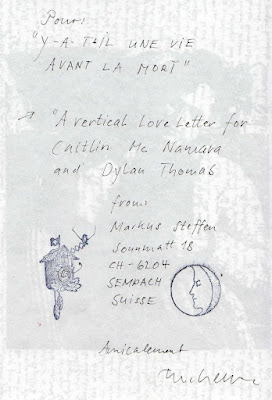 Pour:
"Y-A-T-IL UNE VIE
AVANT LA MORT"
→ "A vertical Love Letter for
Caitlin Mc Namara
and Dylan Thomas
from:
Markus Steffen
Sonnmatt 18
CH-6204
SEMPACH
SUISSE
Amicalement